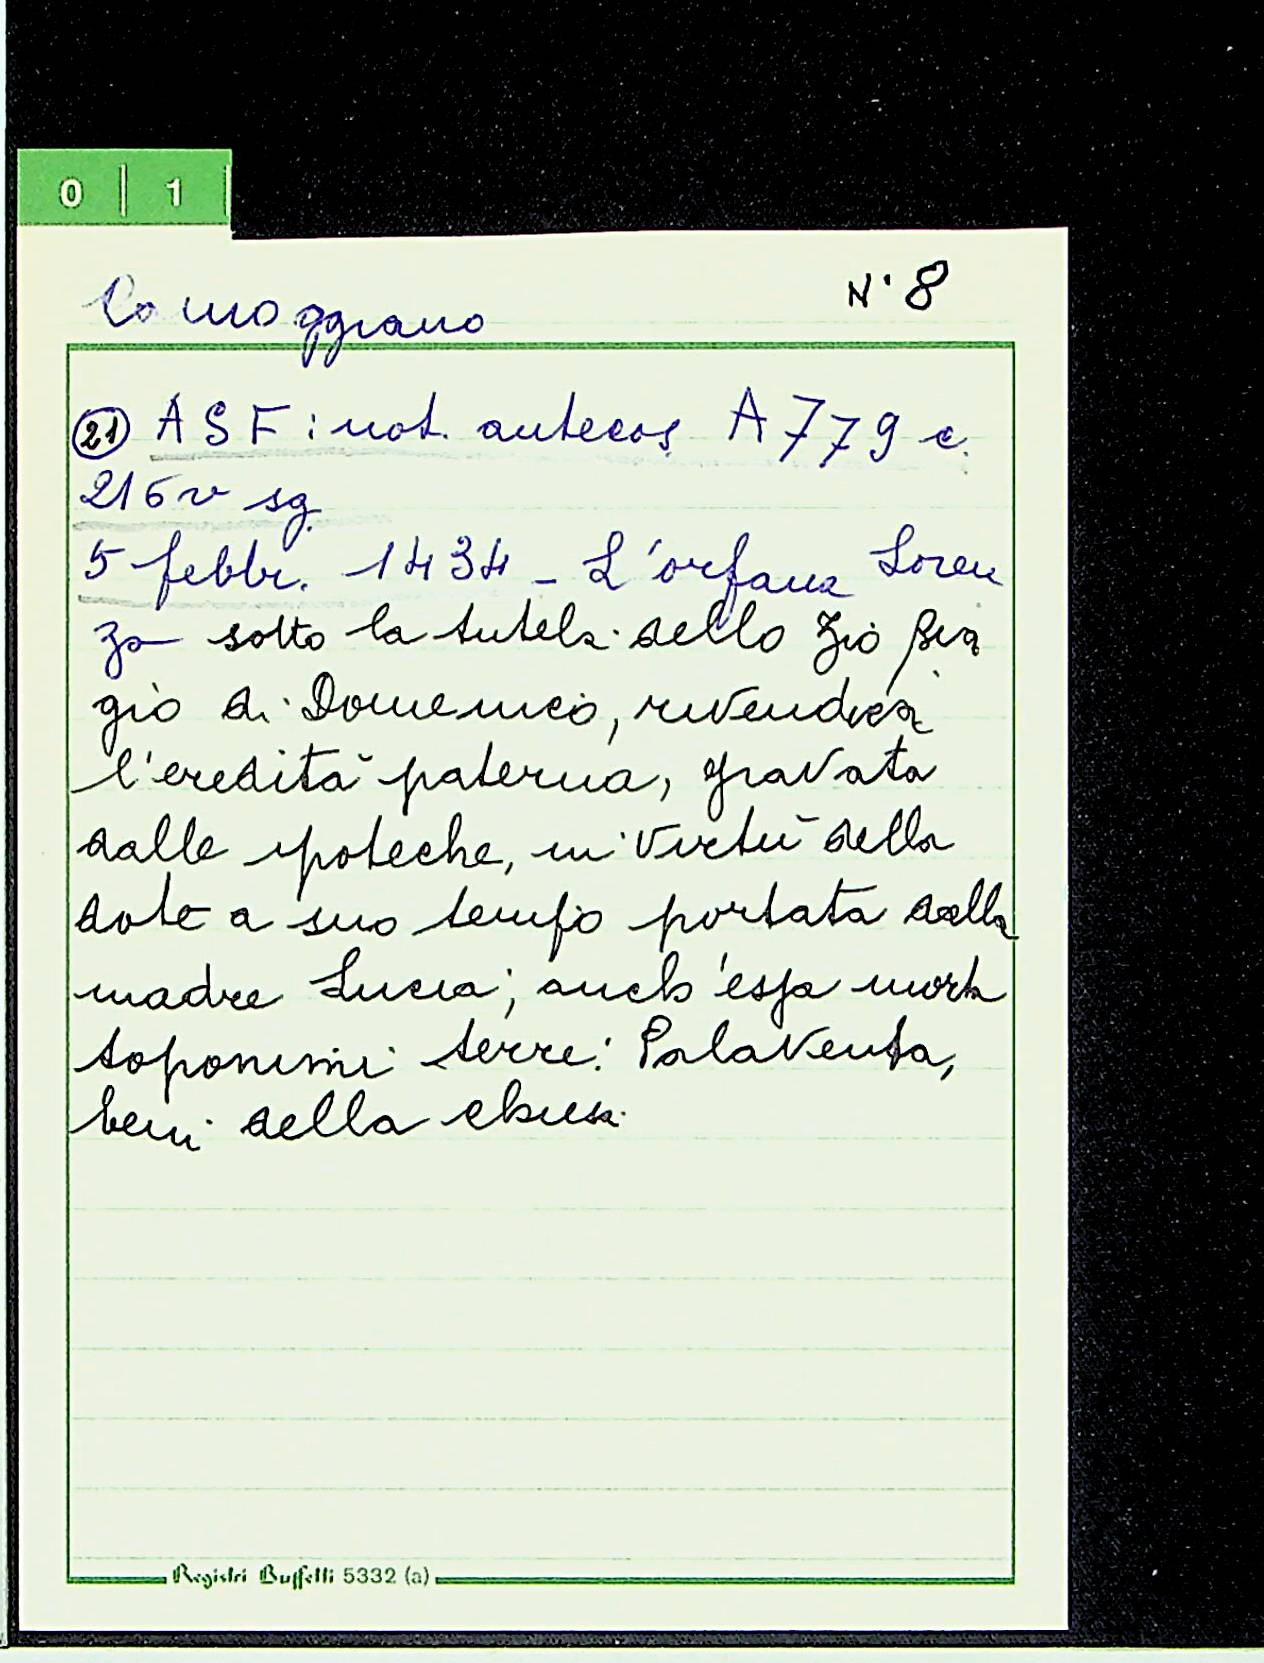 0 | 1
Camoggiano
N° 8
21 ASF: not. antecos. A 779 c.
216v sg.
5 febbr. 1434 - L'orfana Loren
za sotto la tutela dello zio Bia
gio di Domenico, rivendica
l'eredità paterna, gravata
dalle ipoteche, in virtù della
dote a suo tempo portata dalla
madre Lucia; anch'essa morta
toponimi terre: Palaventa,
beni della chiesa
Registri Buffetti 5332 (a)